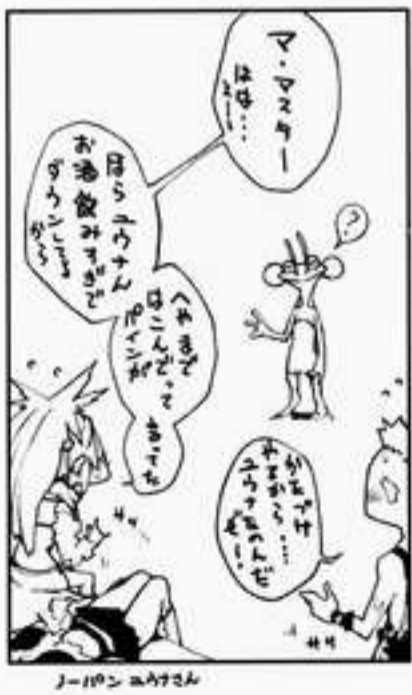 マ・マスター
はは…
えーー
ほらユウナん
お酒飲みすぎで
ダウンしてる
から
へやまで
はこんでって
パインが
言ってた
?
かたづけ
やるから・・・・
ユウナたのんだ
ぞー!
ノーパンユウナさん